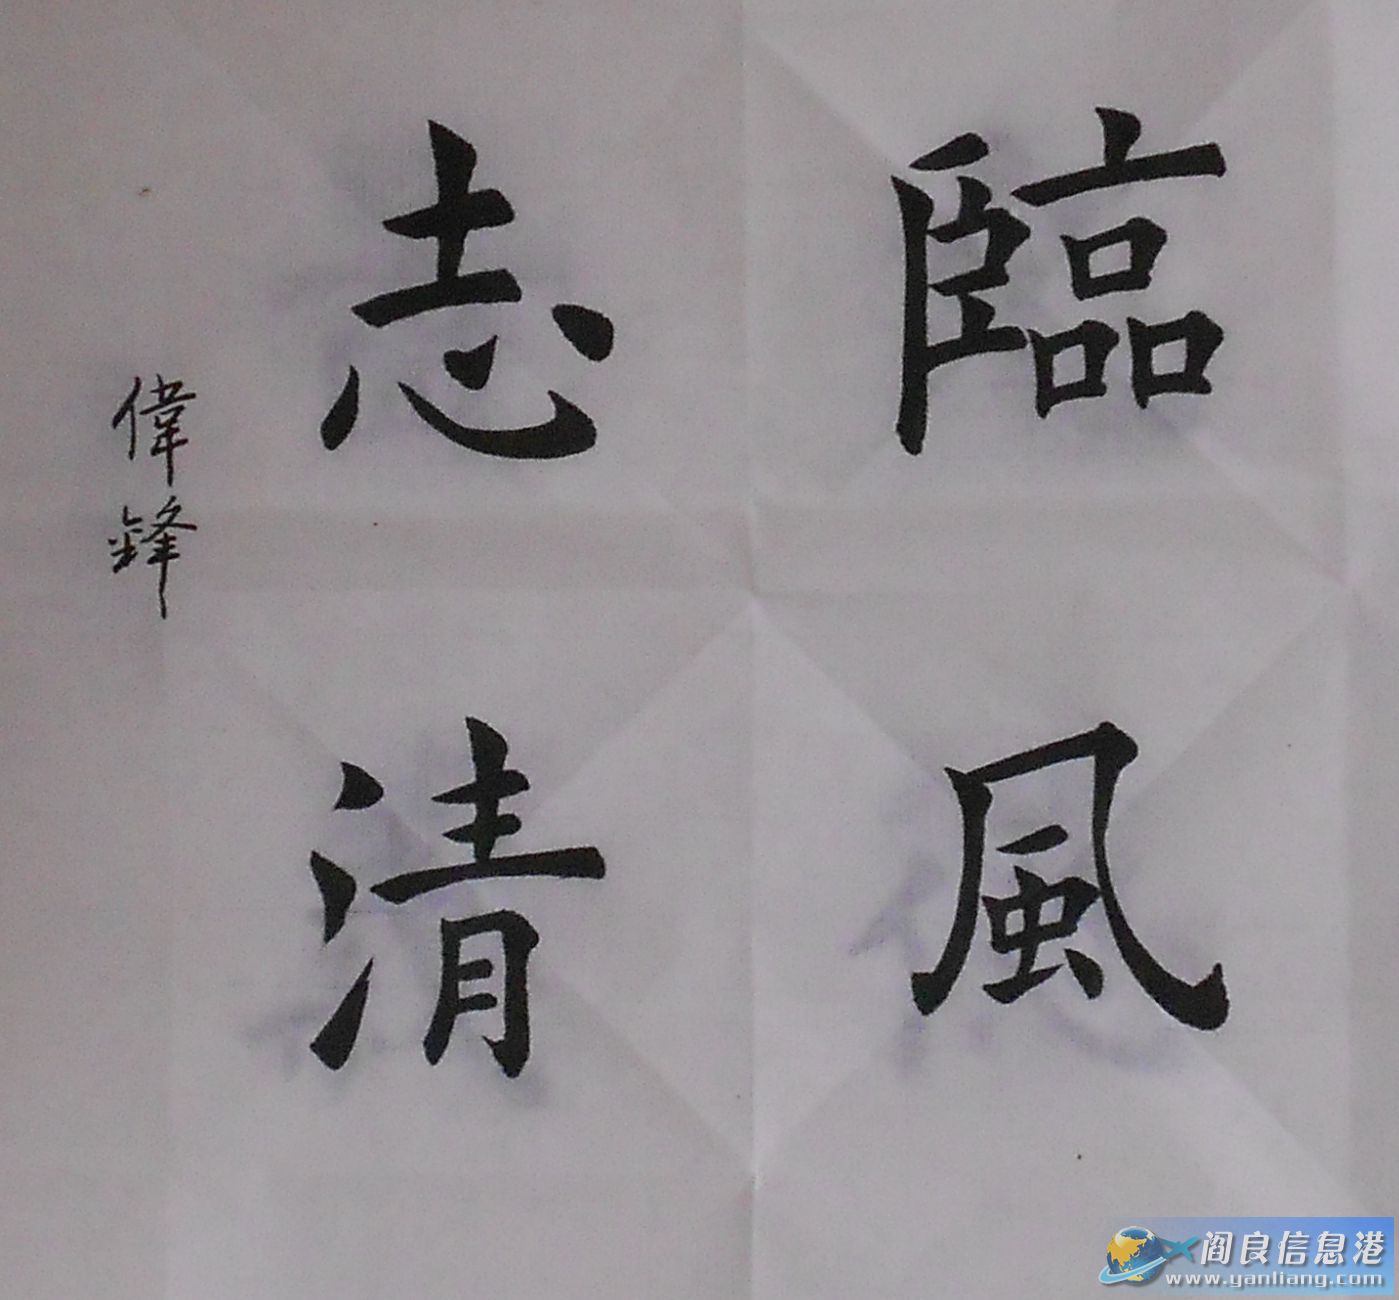 臨風
志清
偉鋒
阎良信息港
www.yanliang.com